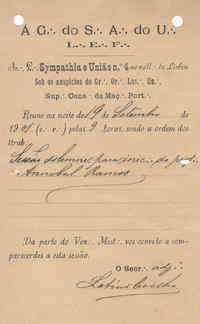 A∴ G∴ do S∴ A∴ do U∴
L∴ E∴ F∴
Sympathia e União n.º 4 ao vall∴ de Lisboa
Sob os auspicios do Gr∴ Or∴ Lus∴ Un∴
Sup∴ Cons∴ da Maç∴ Port∴
Reune na noite de 19 de Setembro de
19 (e∴ v∴) pelas 9 horas, sendo a ordem dos
trab∴
Sessão de
Annibal Ramos
Da parte do Ven∴ Mest∴ vos convoco a com-
parecerdes a esta sessão.
O Secr∴ adj∴